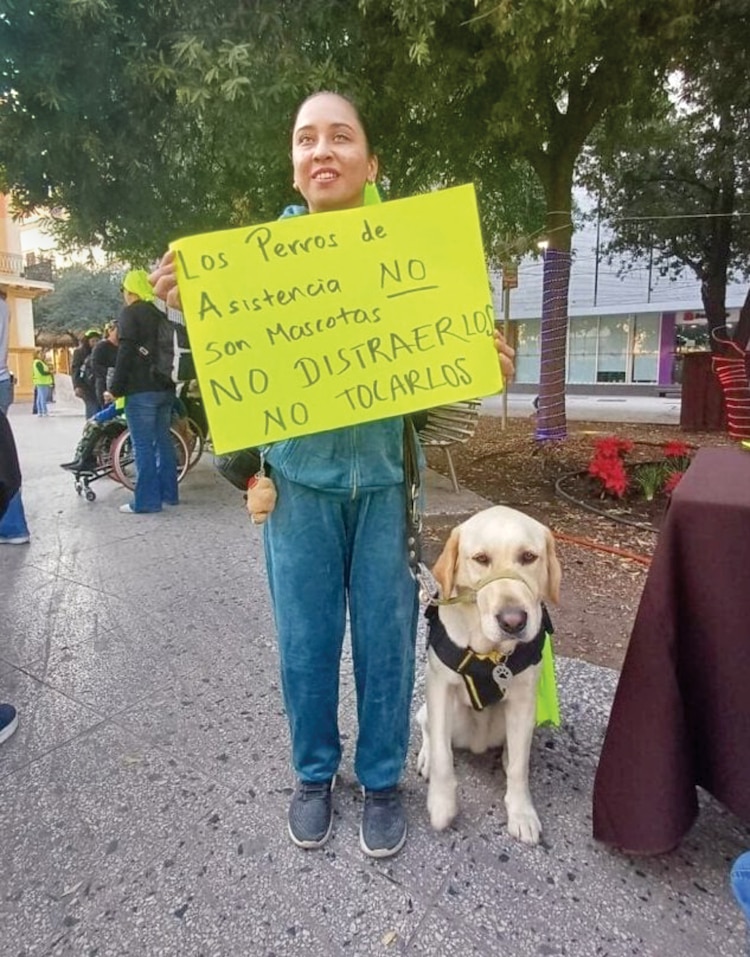 Los Perros de
Asistencia NO
son Mascotas
NO DISTRAERLOS
NO TOCARLOS